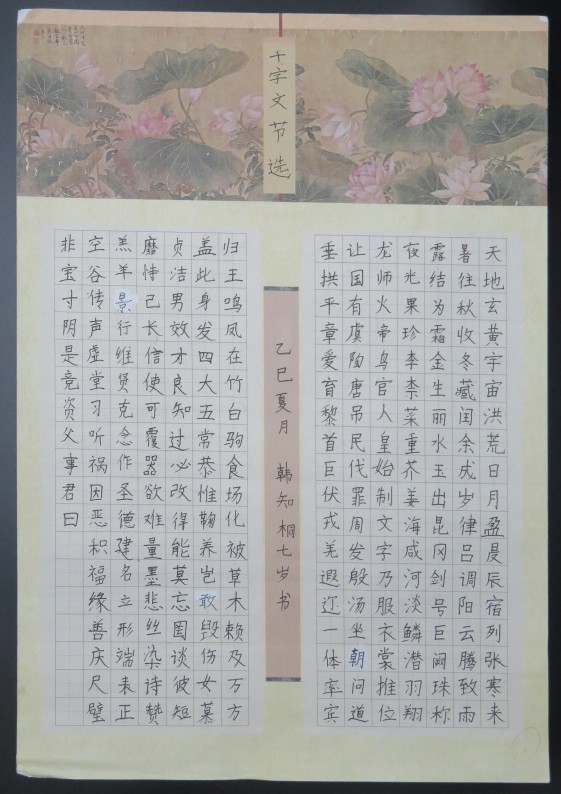 千字文节选
天地玄黄宇宙洪荒日月盈昃辰宿列张寒来
暑往秋收冬藏闰余成岁律吕调阳云腾致雨
露结为霜金生丽水玉出昆冈剑号巨阙珠称
夜光果珍李柰菜重芥姜海咸河淡鳞潜羽翔
龙师火帝鸟官人皇始制文字乃服衣裳推位
让国有虞陶唐吊民伐罪周发殷汤坐朝问道
垂拱平章爱育黎首臣伏戎羌遐迩一体率宾
归王鸣凤在竹白驹食场化被草木赖及万方
盖此身发四大五常恭惟鞠养岂敢毁伤女慕
贞洁男效才良知过必改得能莫忘罔谈彼短
靡恃己长信使可覆器欲难量墨悲丝染诗赞
羔羊景行维贤克念作圣德建名立形端表正
空谷传声虚堂习听祸因恶积福缘善庆尺璧
非宝寸阴是竞资父事君曰
乙巳夏月 韩知桐七岁书